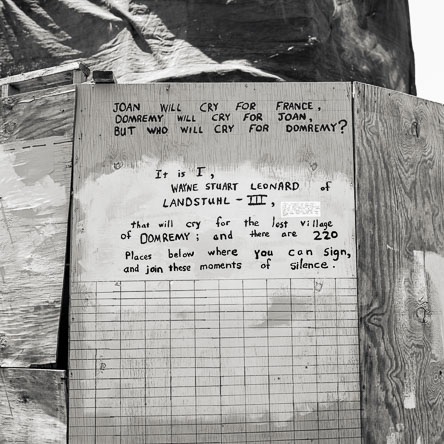 JOAN WILL CRY FOR FRANCE,
DOMREMY WILL CRY FOR JOAN,
BUT WHO WILL CRY FOR DOMREMY?
It is I,
WAYNE STUART LEONARD of
LANDSTUHL - III,
that will cry for the lost village
of DOMREMY; and there are 220
Places below where you can sign,
and join these moments of silence.